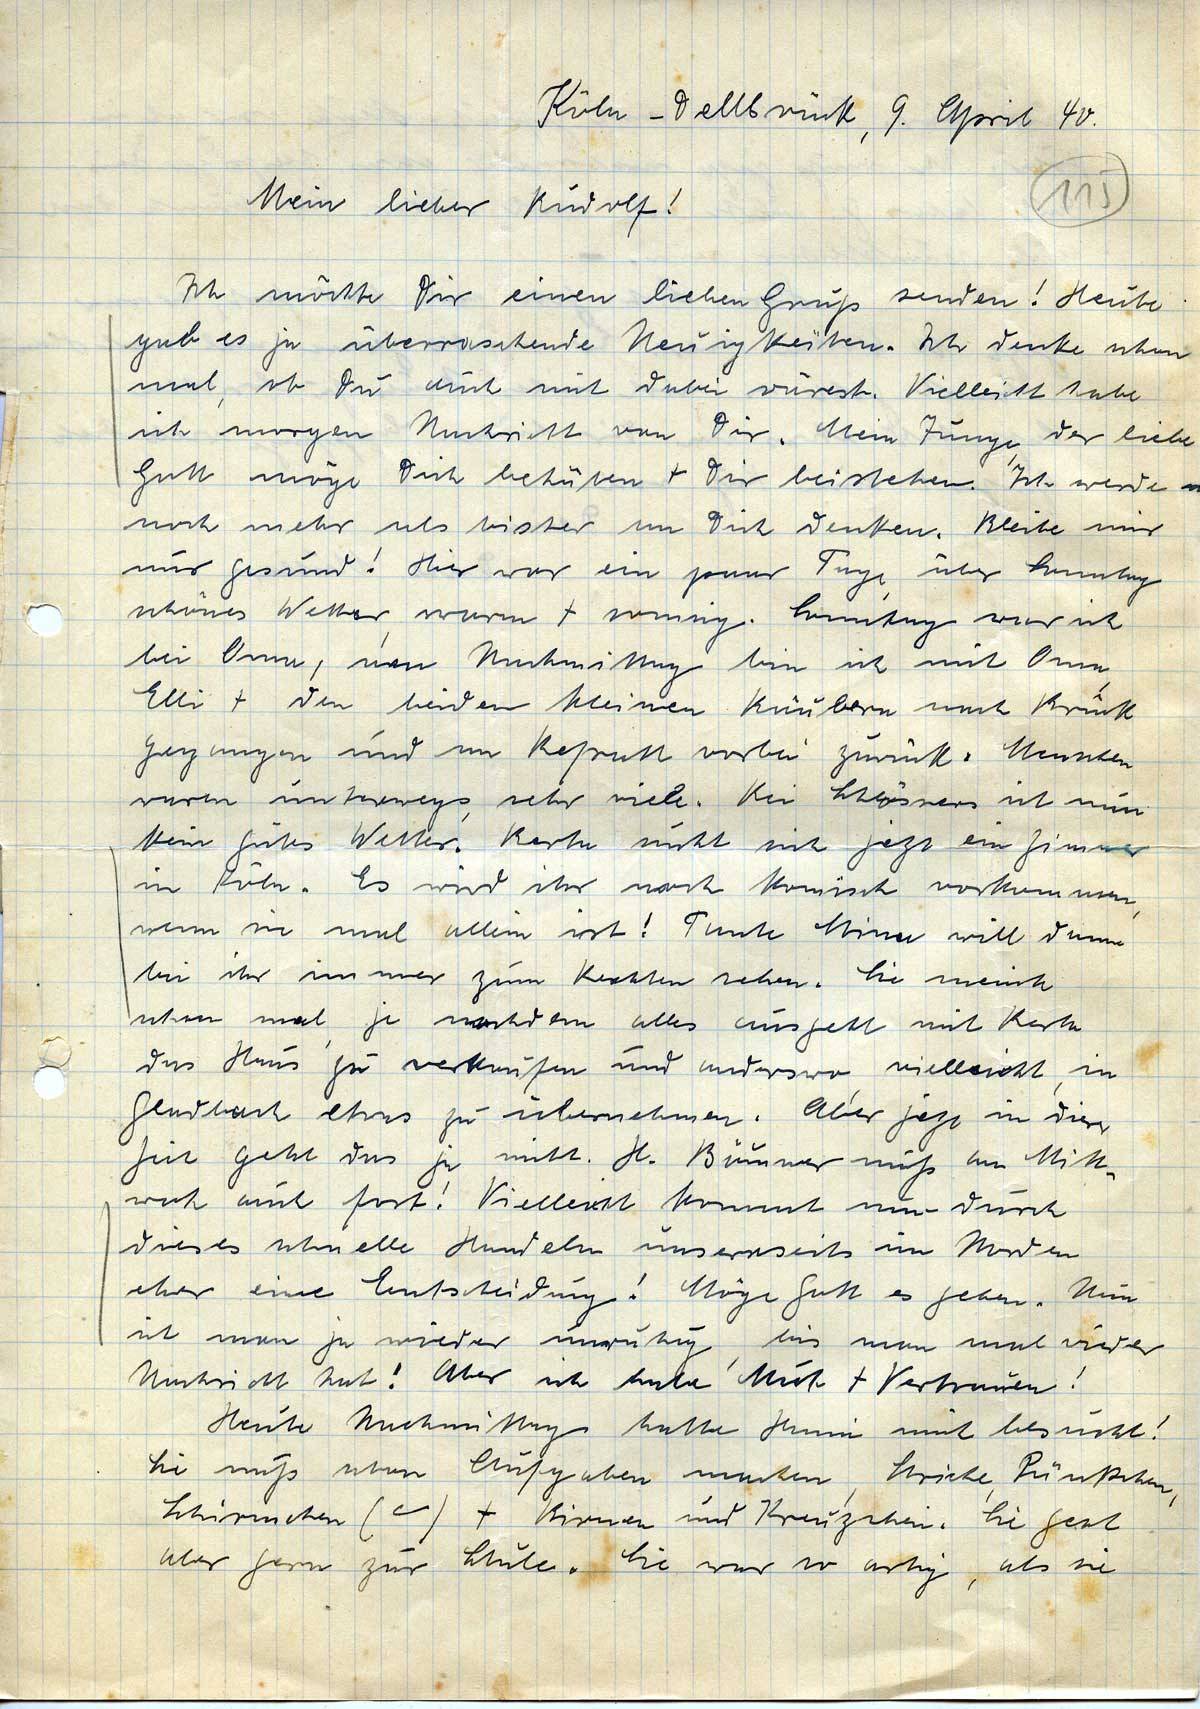 Köln-Dellbrück, 9. April 40.
115
Mein lieber Rudolf!
Ich möchte Dir einen lieben Gruß senden! Heute
gab es ja überraschende Neuigkeiten. Ich denke schon
mal, ob Du auch mit dabei wärest. Vielleicht habe
ich morgen Nachricht von Dir. Mein Junge, der liebe
Gott möge Dich behüten + Dir beistehen. Ich werde
noch mehr als bisher an Dich denken. Bleibe mir
nur gesund! Hier war ein paar Tage, über Sonntag
schönes Wetter, warm + sonnig. Sonntag war ich
bei Oma, Nachmittag bin ich mit Oma,
Elli + den beiden kleinen Räubern nach Brück
gegangen und am Refrath vorbei zurück. Menschen
waren unterwegs, sehr viele. Bei Schlössers ist nun
kein gutes Wetter. Berta sucht sich jetzt ein Zimmer
in Köln. Es wird ihr noch komisch vorkommen,
wenn sie mal allein ist! Tante Mina will dann
bei ihr immer zum Rechten sehen. Sie meint
schon mal, je nachdem alles ausgeht mit Berta
das Haus zu verkaufen und anderswo, vielleicht in
Gladbach etwas zu übernehmen. Aber jetzt in dieser
Zeit geht das ja nicht. H. muß am Mitt-
woch auch fort! Vielleicht kommt nun durch
dieses schnelle Handeln unsererseits im Norden
eher eine Entscheidung! Möge Gott es geben. Nun
ist man ja wieder unruhig, bis man mal wieder
Nachricht hat! Aber ich habe Mut + Vertrauen!
Heute Nachmittag hatte Hanni mich besucht!
Sie muß schon Aufgaben machen, Striche, Pünktchen,
Schirmchen (⌣) + Birnen und Kreuzchen. Sie geht
aber gern zur Schule. Sie war so artig, als sie